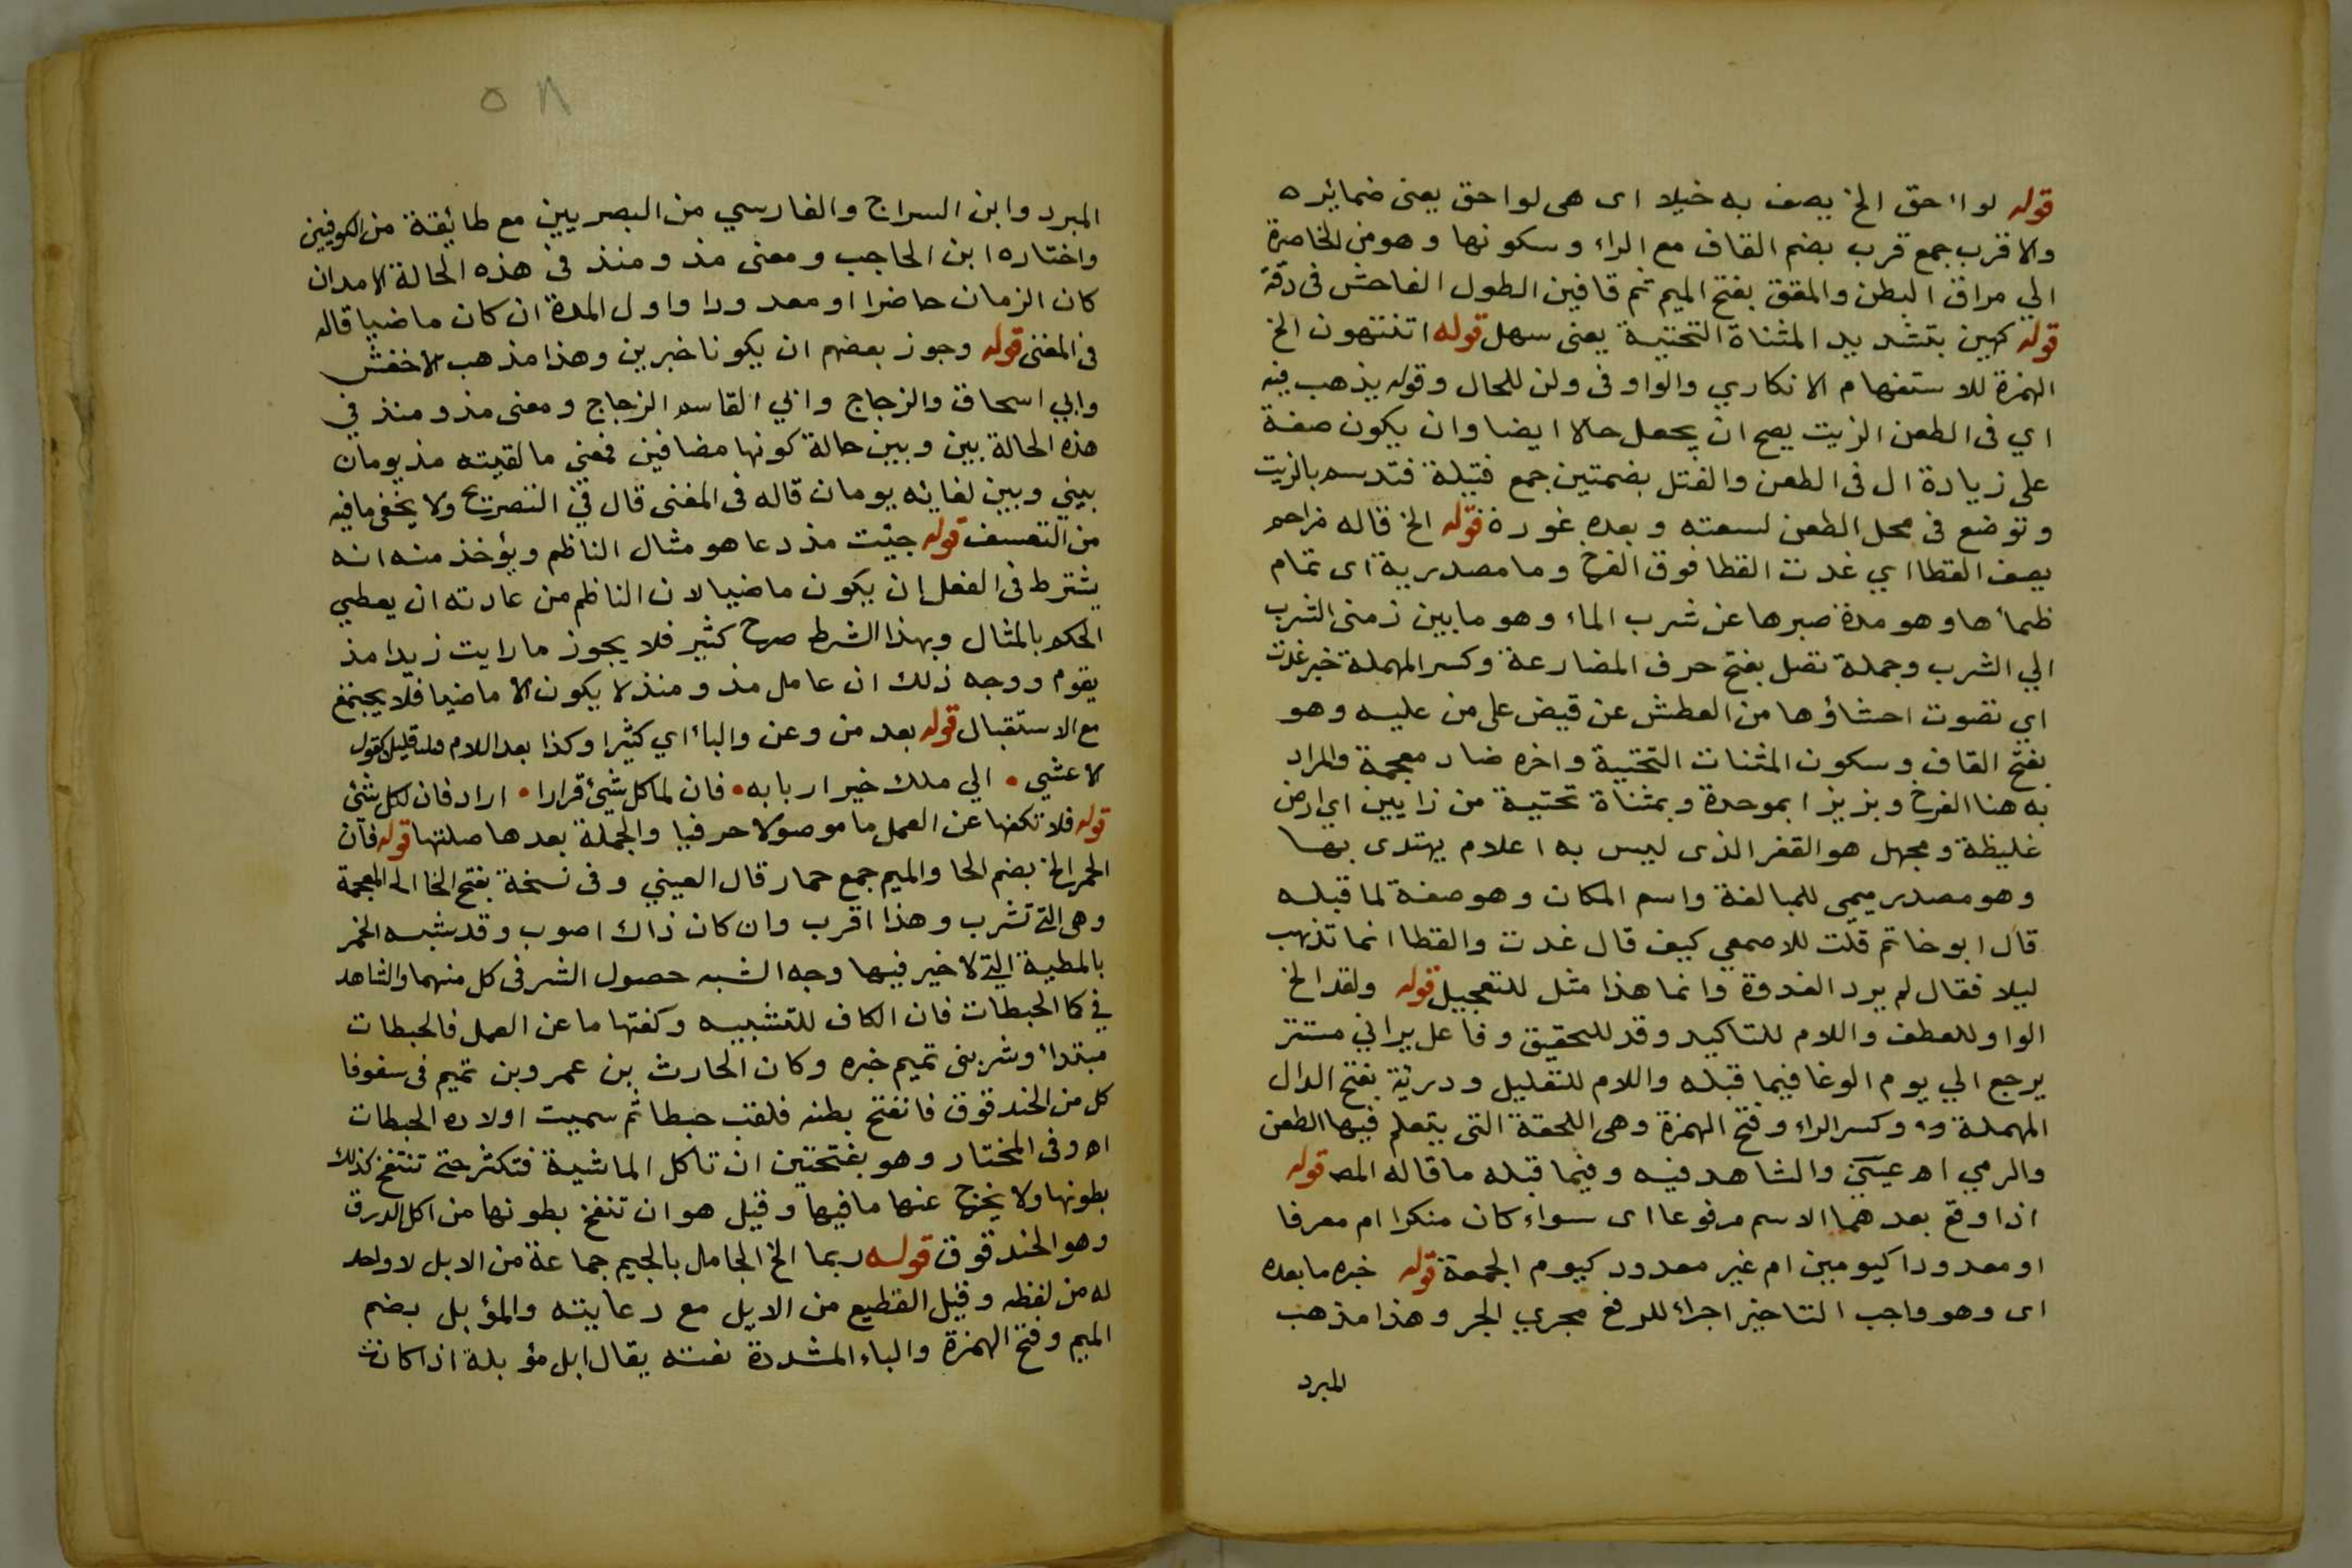 قوله لواحق الخ يصف به خيلا اى هى لواحق يعنى ضمائره
والاقرب جمع قرب بضم القاف مع الراء وسكونها وهو من الخاصرة
الي مراق البطن والمقق بفتح الميم ثم قافين الطول الفاحش فى دقة
قوله كهين بتشديد المثناة التحتية يعنى سهل قوله اتنتهون الخ
الهمزة للاستفهام الانكاري والواو فى ولن للحال وقوله يذهب فيه
اي فى الطعن الزيت يصح ان يجعل حالا ايضا وان يكون صفة
على زيادة ال فى الطعن والفتل بضمتين جمع فتيلة فتدسم بالزيت
وتوضع فى محل الطعن لسعته وبعده غورة قوله الخ قاله مزاحم
يصف القطا اي غدت القطا فوق الفرخ وما مصدرية اى تمام
ظمأها وهو مدة صبرها عن شرب الماء وهو ما بين زمنى الشرب
الي الشرب وجملة تصل بفتح حرف المضارعة وكسر المهملة خبر غدت
اي تصوت احشاؤها من العطش عن قيض على من عليه وهو
بفتح القاف وسكون المثنات التحتية واخره ضاد معجمة والمراد
به هنا الفرخ وبزيزا بموحدة وبمثناة تحتية من زايين اي ارض
غليظة ومجهل هو القفر الذى ليس به اعلام يهتدى بها
وهو مصدر ميمى للمبالغة واسم المكان وهو صفة لما قبله
قال ابو خاتم قلت للاصمعي كيف قال غدت والقطا انما تذهب
ليلا فقال لم يرد الغدوة وانما هذا مثل للتعجيل قوله ولقد الخ
الواو للعطف واللام للتاكيد وقد للتحقيق وفاعل يراني مستتر
يرجع الي يوم الوغا فيما قبله واللام للتعليل ودرئة بفتح الدال
المهملة وكسر الراء وفتح الهمزة وهى اللحقة التى يتعلم فيها الطعن
والرمي اه عيني والشاهد فيه وفيما قبله ما قاله المص قوله
اذا وقع بعدهما الاسم مرفوعا اى سواء كان منكرا ام معرفا
او معدودا كيومين ام غير معدود كيوم الجمعة قوله خبره ما بعده
اى وهو واجب التاخير اجراء للرفع مجري الجر وهذا مذهب
المبرد
٥٨
المبرد وابن السراج والفارسي من البصريين مع طائفة من الكوفيين
واختاره ابن الحاجب ومعنى مذ ومنذ فى هذه الحالة الامد ان
كان الزمان حاضرا او معدودا واول المدة ان كان ماضيا قاله
فى المغنى قوله وجوز بعضهم ان يكونا خبرين وهذا مذهب الاخفش
وابي اسحاق والزجاج وابي القاسم الزجاج ومعنى مذ ومنذ في
هذه الحالة بين وبين حالة كونها مضافين فمعنى ما لقيته مذ يومان
بيني وبين لقائه يومان قاله فى المغنى قال في التصريح ولا يخفى ما فيه
من التعسف قوله جيئت مذ دعا هو مثال الناظم ويؤخذ منه انه
يشترط فى الفعل ان يكون ماضيا لان الناظم من عادته ان يعطي
الحكم بالمثال وبهذا الشرط صرح كثير فلا يجوز ما رايت زيدا مذ
يقوم ووجه ذلك ان عامل مذ ومنذ لا يكون الا ماضيا فلا يجتمع
مع الاستقبال قوله بعد من وعن والباء اي كثيرا وكذا بعد اللام قليل كقول
الاعشي • الي ملك خير اربابه • فان لما كل شيئ قرارا • اراد فان لكل شئ
قوله فلا تكفها عن العمل ما موصولا حرفيا والجملة بعدها صلتها قوله فان
الحمر الخ بضم الحا والميم جمع حمار قال العيني وفى نسخة بفتح الخا المعجمة
وهى التى تشرب وهذا اقرب وان كان ذاك اصوب وقد شبه الخمر
بالمطية التي لا خير فيها وجه الشبه حصول الشر فى كل منهما والشاهد
في كما الحبطات فان الكاف للتشبيه وكفتها ما عن العمل فالحبطات
مبتدأ وشر بنى تميم خبره وكان الحارث بن عمرو بن تميم فى سفر فا
كل من الحندقوق فانفتح بطنه فلقب حبطا ثم سميت اولاده الحبطات
اه وفى المختار وهو بفتحتين ان تاكل الماشية فتكثر حتى تنتفخ كذلك
بطونها ولا يخرج عنها ما فيها وقيل هو ان تنفخ بطونها من اكل الدرق
وهو الحندقوق قوله ربما الخ الجامل بالجيم جماعة من الابل لا واحد
له من لفظه وقيل القطيع من الابل مع رعايته والمؤبل بضم
الميم وفتح الهمزة والباء المشددة نعته يقال ابل مؤبلة اذا كانت